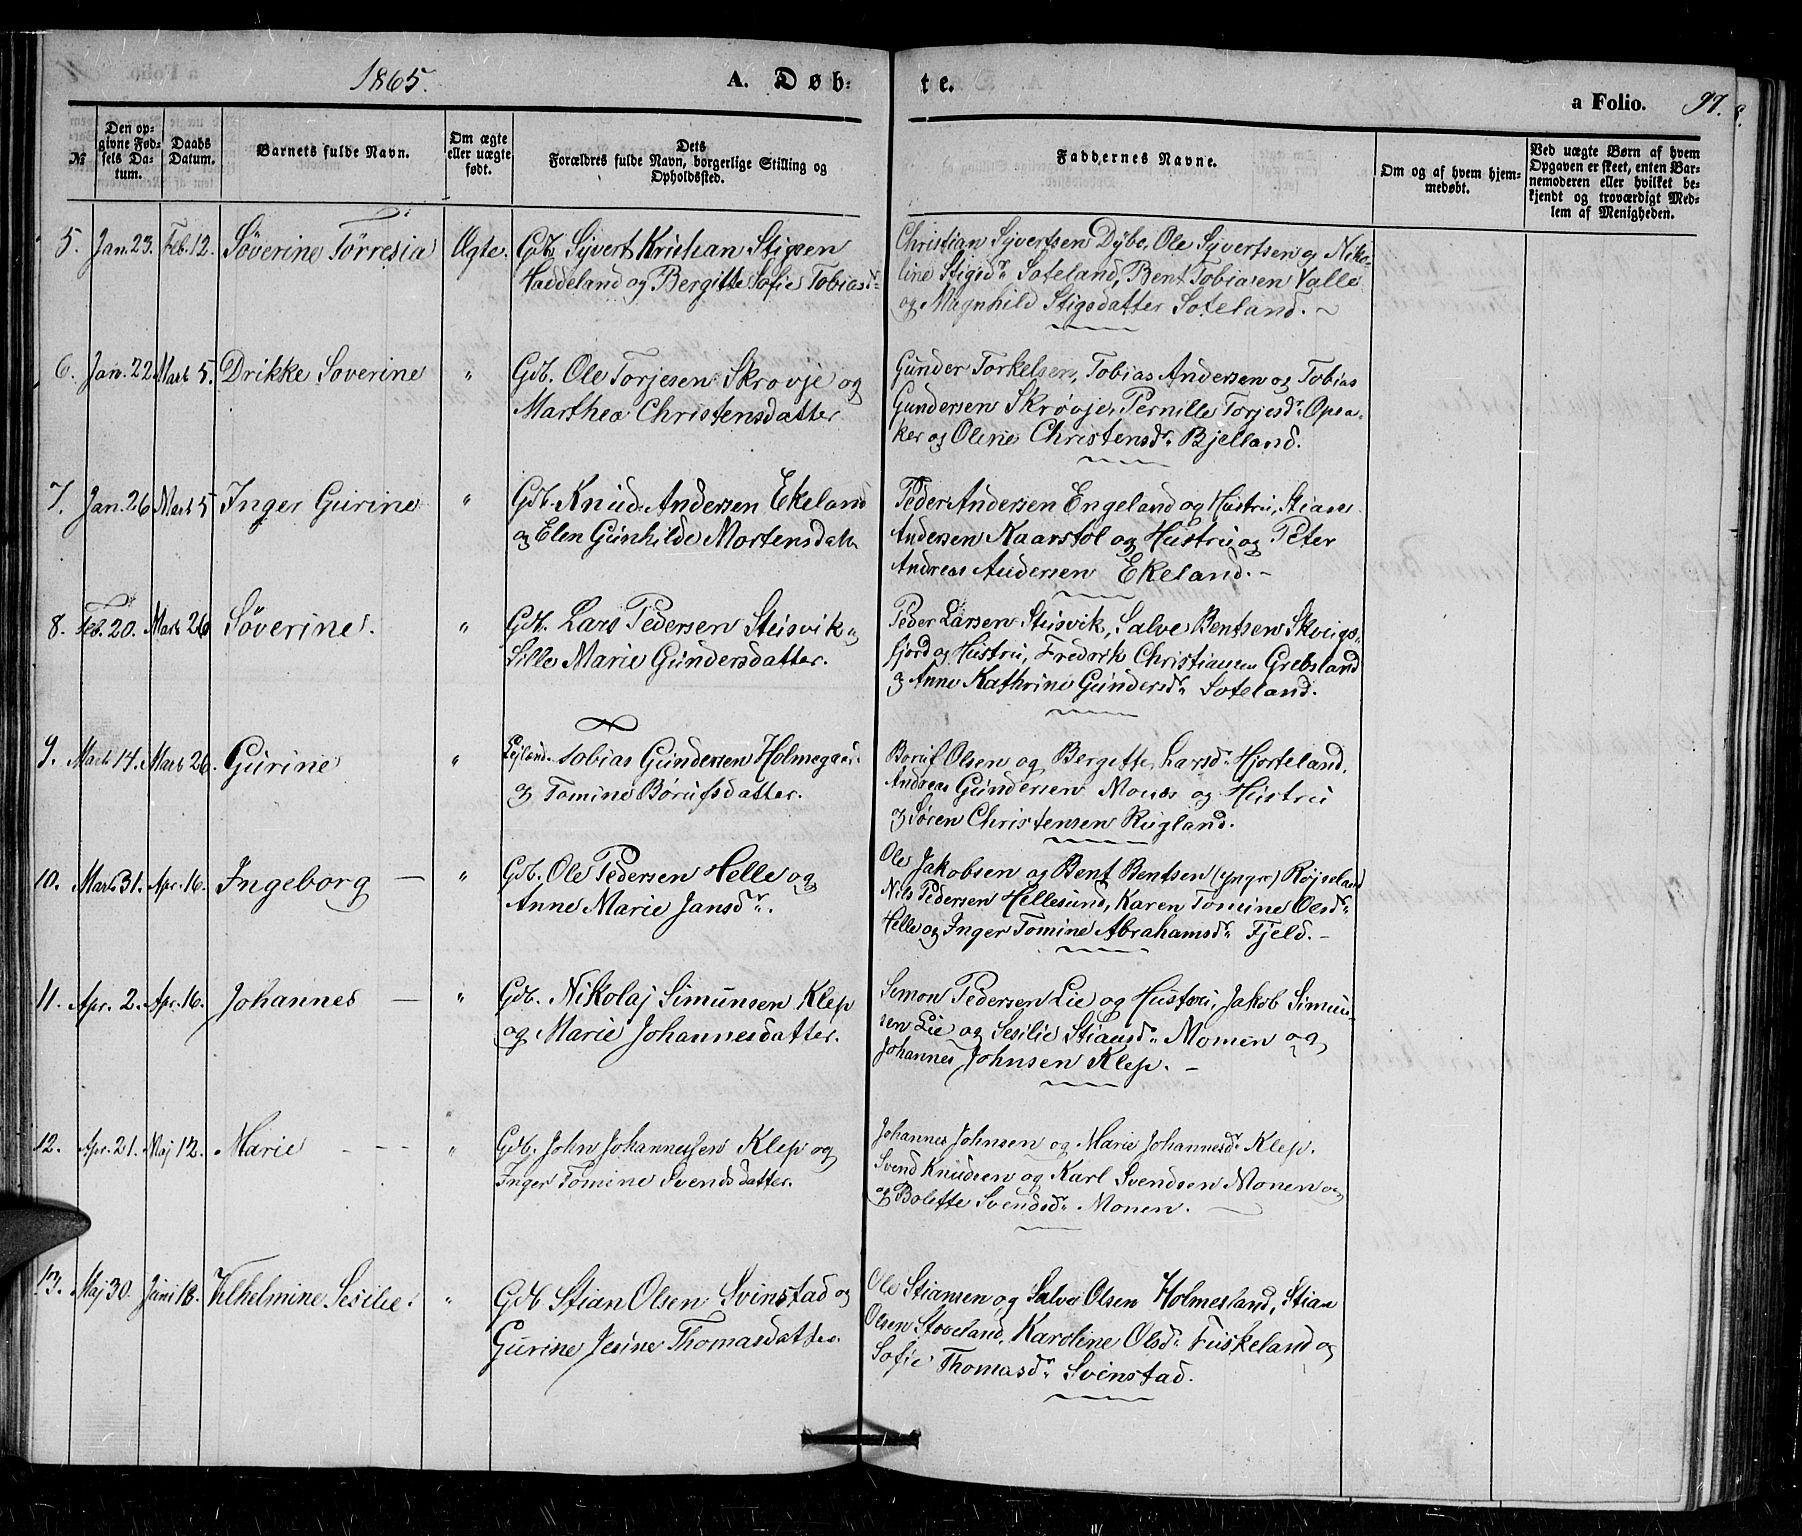 1865.
A. Døb-
te.
a Folio. 97.
№
Den op-
givne Fød-
sels Da-
tum.
Daabs
Datum.
Barnets fulde Navn.
Om ægte
eller uægte
født.
Dets
Forældres fulde Navn, borgerlige Stilling og
Opholdssted.
Faddernes Navne.
Om og af hvem hjem-
medøbt.
Ved uægte Børn af hvem
Opgaven er skeet, enten Bar-
nemoderen eller hvilket be-
kjendt og troværdigt Med-
lem af Menigheden.
5. Jan. 23. Feb. 12. Söverine Törresia Ægte. Gdb. Syvert Kristian Stigsen
Haddeland og Bergitte Sofie Tobiasdr
Christian Syvertsen Dybo, Ole Syvertsen og Niko-
line Stigsdr Soteland, Bent Tobiasen Valle
og Magnhild Stigsdatter Soteland.
6. Jan. 22. Marts 5. Drikke Soverine " Gdb. Ole Torjesen Skrovje og
Marthea Christensdatter
Gunder Torkelsen, Tobias Andersen og Tobias
Gundersen Skrövje, Pernille Torjesdr Opsa-
ker og Oline Christensdr Bjelland.
7. Jan. 26 Marts 5 Inger Gurine " Gdb. Knud Andersen Ekeland
og Elen Gunhilde Mortensdatr
Peder Andersen Engeland og Hustru, Stian
Andersen Kaarstol og Hustru og Peter
Andreas Andersen Ekeland. -
8. Feb. 20. Marts 26 Söverine. " Gdb. Lars Pedersen Steisvik og
Sille Marie Gundersdatter.
Peder Larsen Steisvik, Salve Bentsen Skveigs-
fjord og Hustru, Fredrik Christiansen Grebsland
og Anne Kathrine Gundersdr Soteland.
9. Marts 14. Marts 26. Gurine " Lejland. Tobias Gundersen Holmegaar.
og Tomine Börufsdatter.
Boruf Olsen og Bergitte Larsdr Hjorteland,
Andreas Gundersen Monæs og Hustru
og Sören Christensen Rugland.
10. Marts 31. Apr. 16. Ingeborg — " Gdb. Ole Pedersen Helle og
Anne Marie Jansdr.
Ole Jakobsen og Bent Bentsen (yngre) Röjseland
Nils Pedersen Hellesund, Karen Tomine Olsdr
Helle og Inger Tomine Abrahamsdr Fjeld. -
11. Apr. 2. Apr. 16. Johannes — " Gdb. Nikolaj Simunsen Klep
og Marie Johannesdatter.
Semon Pedersen Lie og Hustru, Jakob Simun-
sen Lie og Sesilie Stiansdr Momen og
Johannes Johnsen Klep. -
12. Apr. 21. Maj 12. Marie - - - " Gdb. John Johannessen Klep og
Inger Tomine Svendsdatter.
Johannes Johnsen og Marie Johannesdr Klep.
Svend Knudsen og Karl Svendsen Monen og
og Bolette Svendsdr Monen.
13. Maj 30. Juni 18. Vilhelmine Sesilie. " Gdb Stian Olsen Svinstad og
Gurine Jesine Thomasdatter
Ole Stiansen og Salve Olsen Holmesland, Stian
Olsen Stoveland, Karoline Olsdr Fuskeland og
Sofie Thomasdr Svinstad.